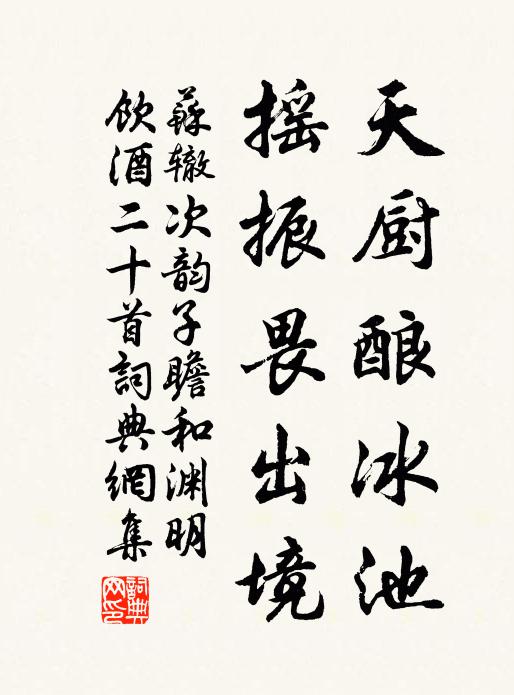 天厨酿冰池
摇振畏出境
蘇辙次韵子瞻和渊明
飲酒二十首詞典網集
詞典網印